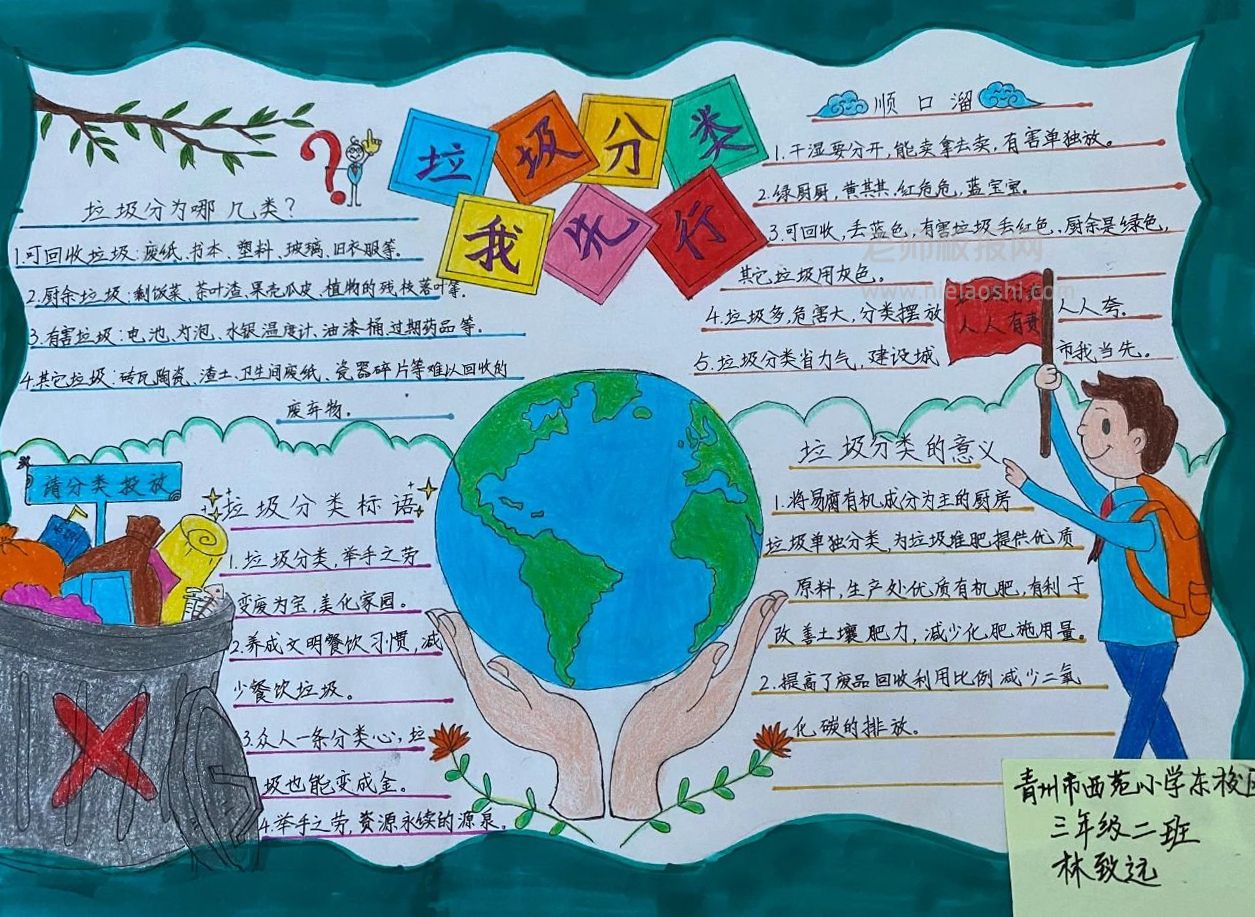 垃圾分类
我先行
垃圾分为哪几类?
1.可回收垃圾:废纸、书本、塑料、玻璃、旧衣服等。
2.厨余垃圾:剩饭菜、茶叶渣、果壳瓜皮、植物的残枝落叶等。
3.有害垃圾:电池、灯泡、水银温度计、油漆桶、过期药品等。
4.其它垃圾:砖瓦陶瓷、渣土、卫生间废纸、瓷器碎片等难以回收的
废弃物。
顺口溜
1.干湿要分开,能卖拿去卖,有害单独放。
2.绿厨厨,黄其其,红危危,蓝宝宝。
3.可回收,丢蓝色,有害垃圾丢红色,厨余是绿色,
其它垃圾用灰色。
4.垃圾多,危害大,分类摆放人人夸。
5.垃圾分类省力气,建设城市我当先。
人人有责
老师板报网
www.nielaoshi.com
请分类投放
垃圾分类标语
1.垃圾分类,举手之劳
变废为宝,美化家园。
2.养成文明餐饮习惯,减
少餐饮垃圾。
3.众人一条分类心,垃
圾也能变成金。
4.举手之劳,资源永续的源泉。
垃圾分类的意义
1.将易腐有机成分为主的厨房
垃圾单独分类,为垃圾堆肥提供优质
原料,生产处优质有机肥,有利于
改善土壤肥力,减少化肥施用量。
2.提高了废品回收利用比例减少二氧
化碳的排放。
青州市西苑小学东校区
三年级二班
林致远